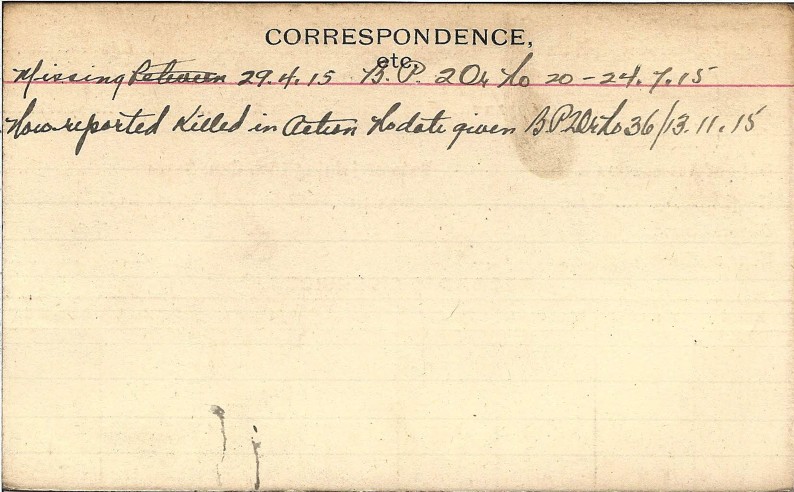 CORRESPONDENCE,
etc.
Missing Between 29.4.15 B. P. 2 Or No 20 - 24.7.15
Now reported Killed in Action No date given B P 2 Or No 36/13.11.15